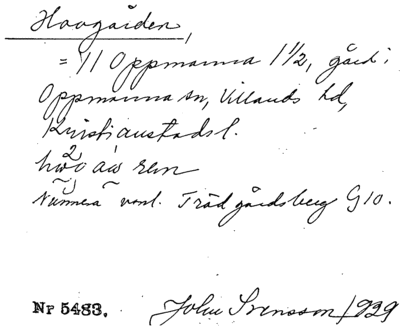 Hovgården,
= 11 Oppmanna 1 1/2, gård i
Oppmanna sn, Villands hd,
Kristianstads l.
Numera vanl. Trädgårdsberg G10.
Nr 5483. John Svensson 1929